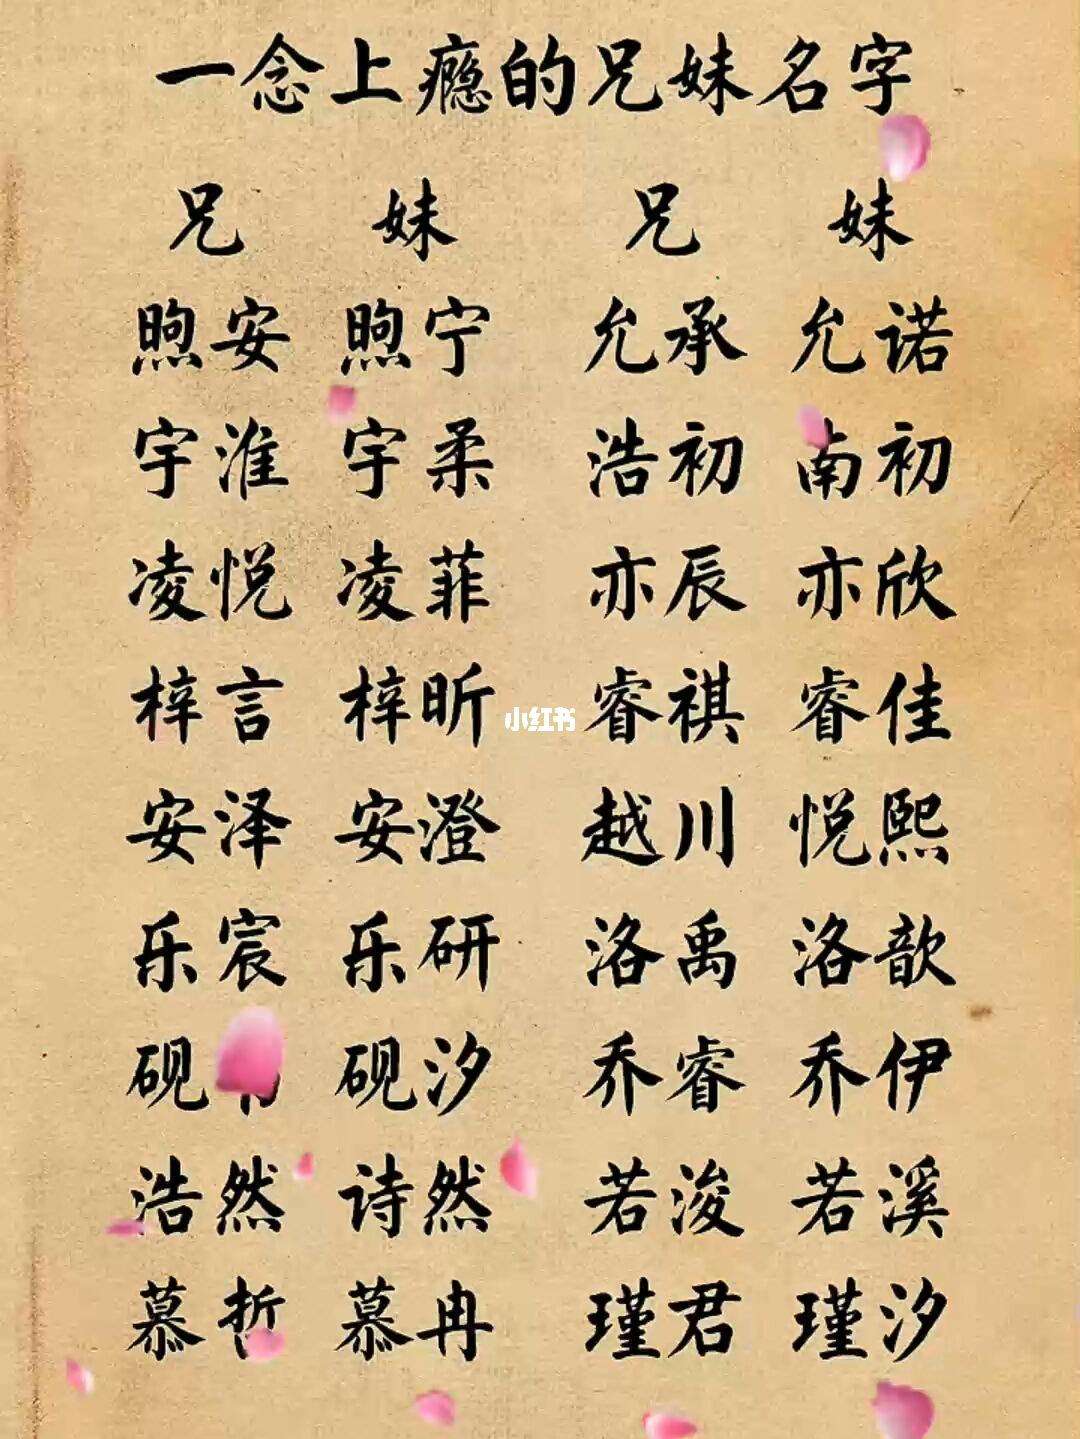 一念上瘾的兄妹名字
兄 妹 兄 妹
煦安 煦宁 允承 允诺
宇淮 宇柔 浩初 南初
凌悦 凌菲 亦辰 亦欣
梓言 梓昕 睿祺 睿佳
小红书
安泽 安澄 越川 悦熙
乐宸 乐研 洛禹 洛歆
砚 砚汐 乔睿 乔伊
浩然 诗然 若浚 若溪
慕哲 慕冉 瑾君 瑾汐